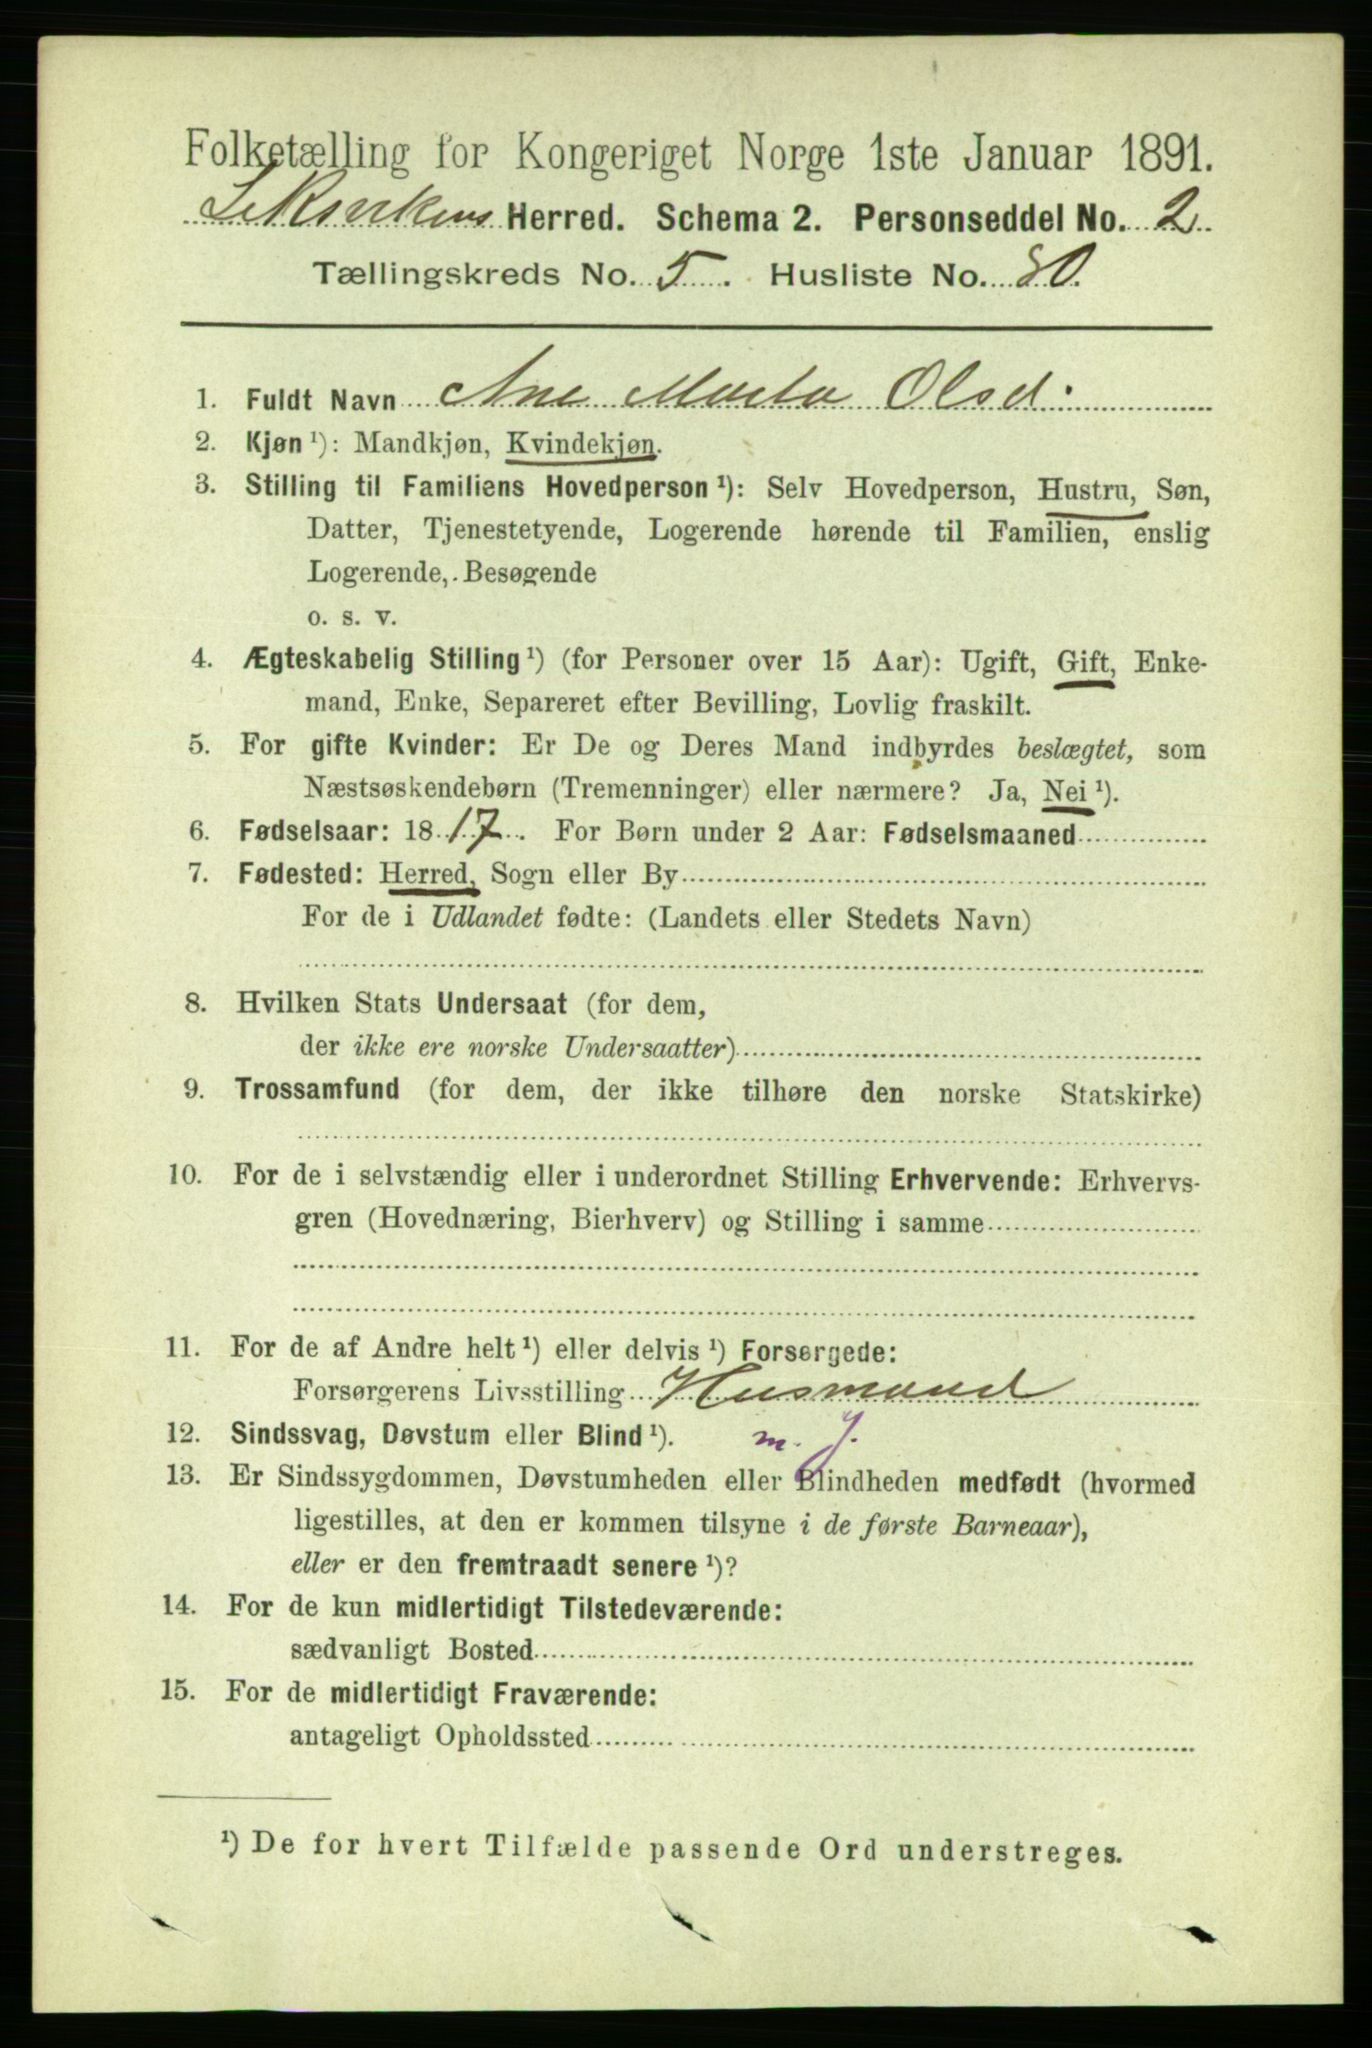 Folketælling for Kongeriget Norge 1ste Januar 1891.
Leksvikens Herred. Schema 2. Personseddel No. 2
Tællingskreds No. 5. Husliste No. 80.
1. Fuldt Navn Ane Marta Olsd.
2. Kjøn ¹): Mandkjøn, Kvindekjøn.
3. Stilling til Familiens Hovedperson ¹): Selv Hovedperson, Hustru, Søn,
Datter, Tjenestetyende, Logerende hørende til Familien, enslig
Logerende, Besøgende
o. s. v.
4. Ægteskabelig Stilling ¹) (for Personer over 15 Aar): Ugift, Gift, Enke-
mand, Enke, Separeret efter Bevilling, Lovlig fraskilt.
5. For gifte Kvinder: Er De og Deres Mand indbyrdes beslægtet, som
Næstsøskendebørn (Tremenninger) eller nærmere? Ja, Nei ¹).
6. Fødselsaar: 1817. For Børn under 2 Aar: Fødselsmaaned
7. Fødested: Herred, Sogn eller By
For de i Udlandet fødte: (Landets eller Stedets Navn)
8. Hvilken Stats Undersaat (for dem,
der ikke ere norske Undersaatter)
9. Trossamfund (for dem, der ikke tilhøre den norske Statskirke)
10. For de i selvstændig eller i underordnet Stilling Erhvervende: Erhvervs-
gren (Hovednæring, Bierhverv) og Stilling i samme
11. For de af Andre helt ¹) eller delvis ¹) Forsørgede:
Forsørgerens Livsstilling Husmand
12. Sindssvag, Døvstum eller Blind ¹). m. J.
13. Er Sindssygdommen, Døvstumheden eller Blindheden medfødt (hvormed
ligestilles, at den er kommen tilsyne i de første Barneaar),
eller er den fremtraadt senere ¹)?
14. For de kun midlertidigt Tilstedeværende:
sædvanligt Bosted
15. For de midlertidigt Fraværende:
antageligt Opholdssted
¹) De for hvert Tilfælde passende Ord understreges.